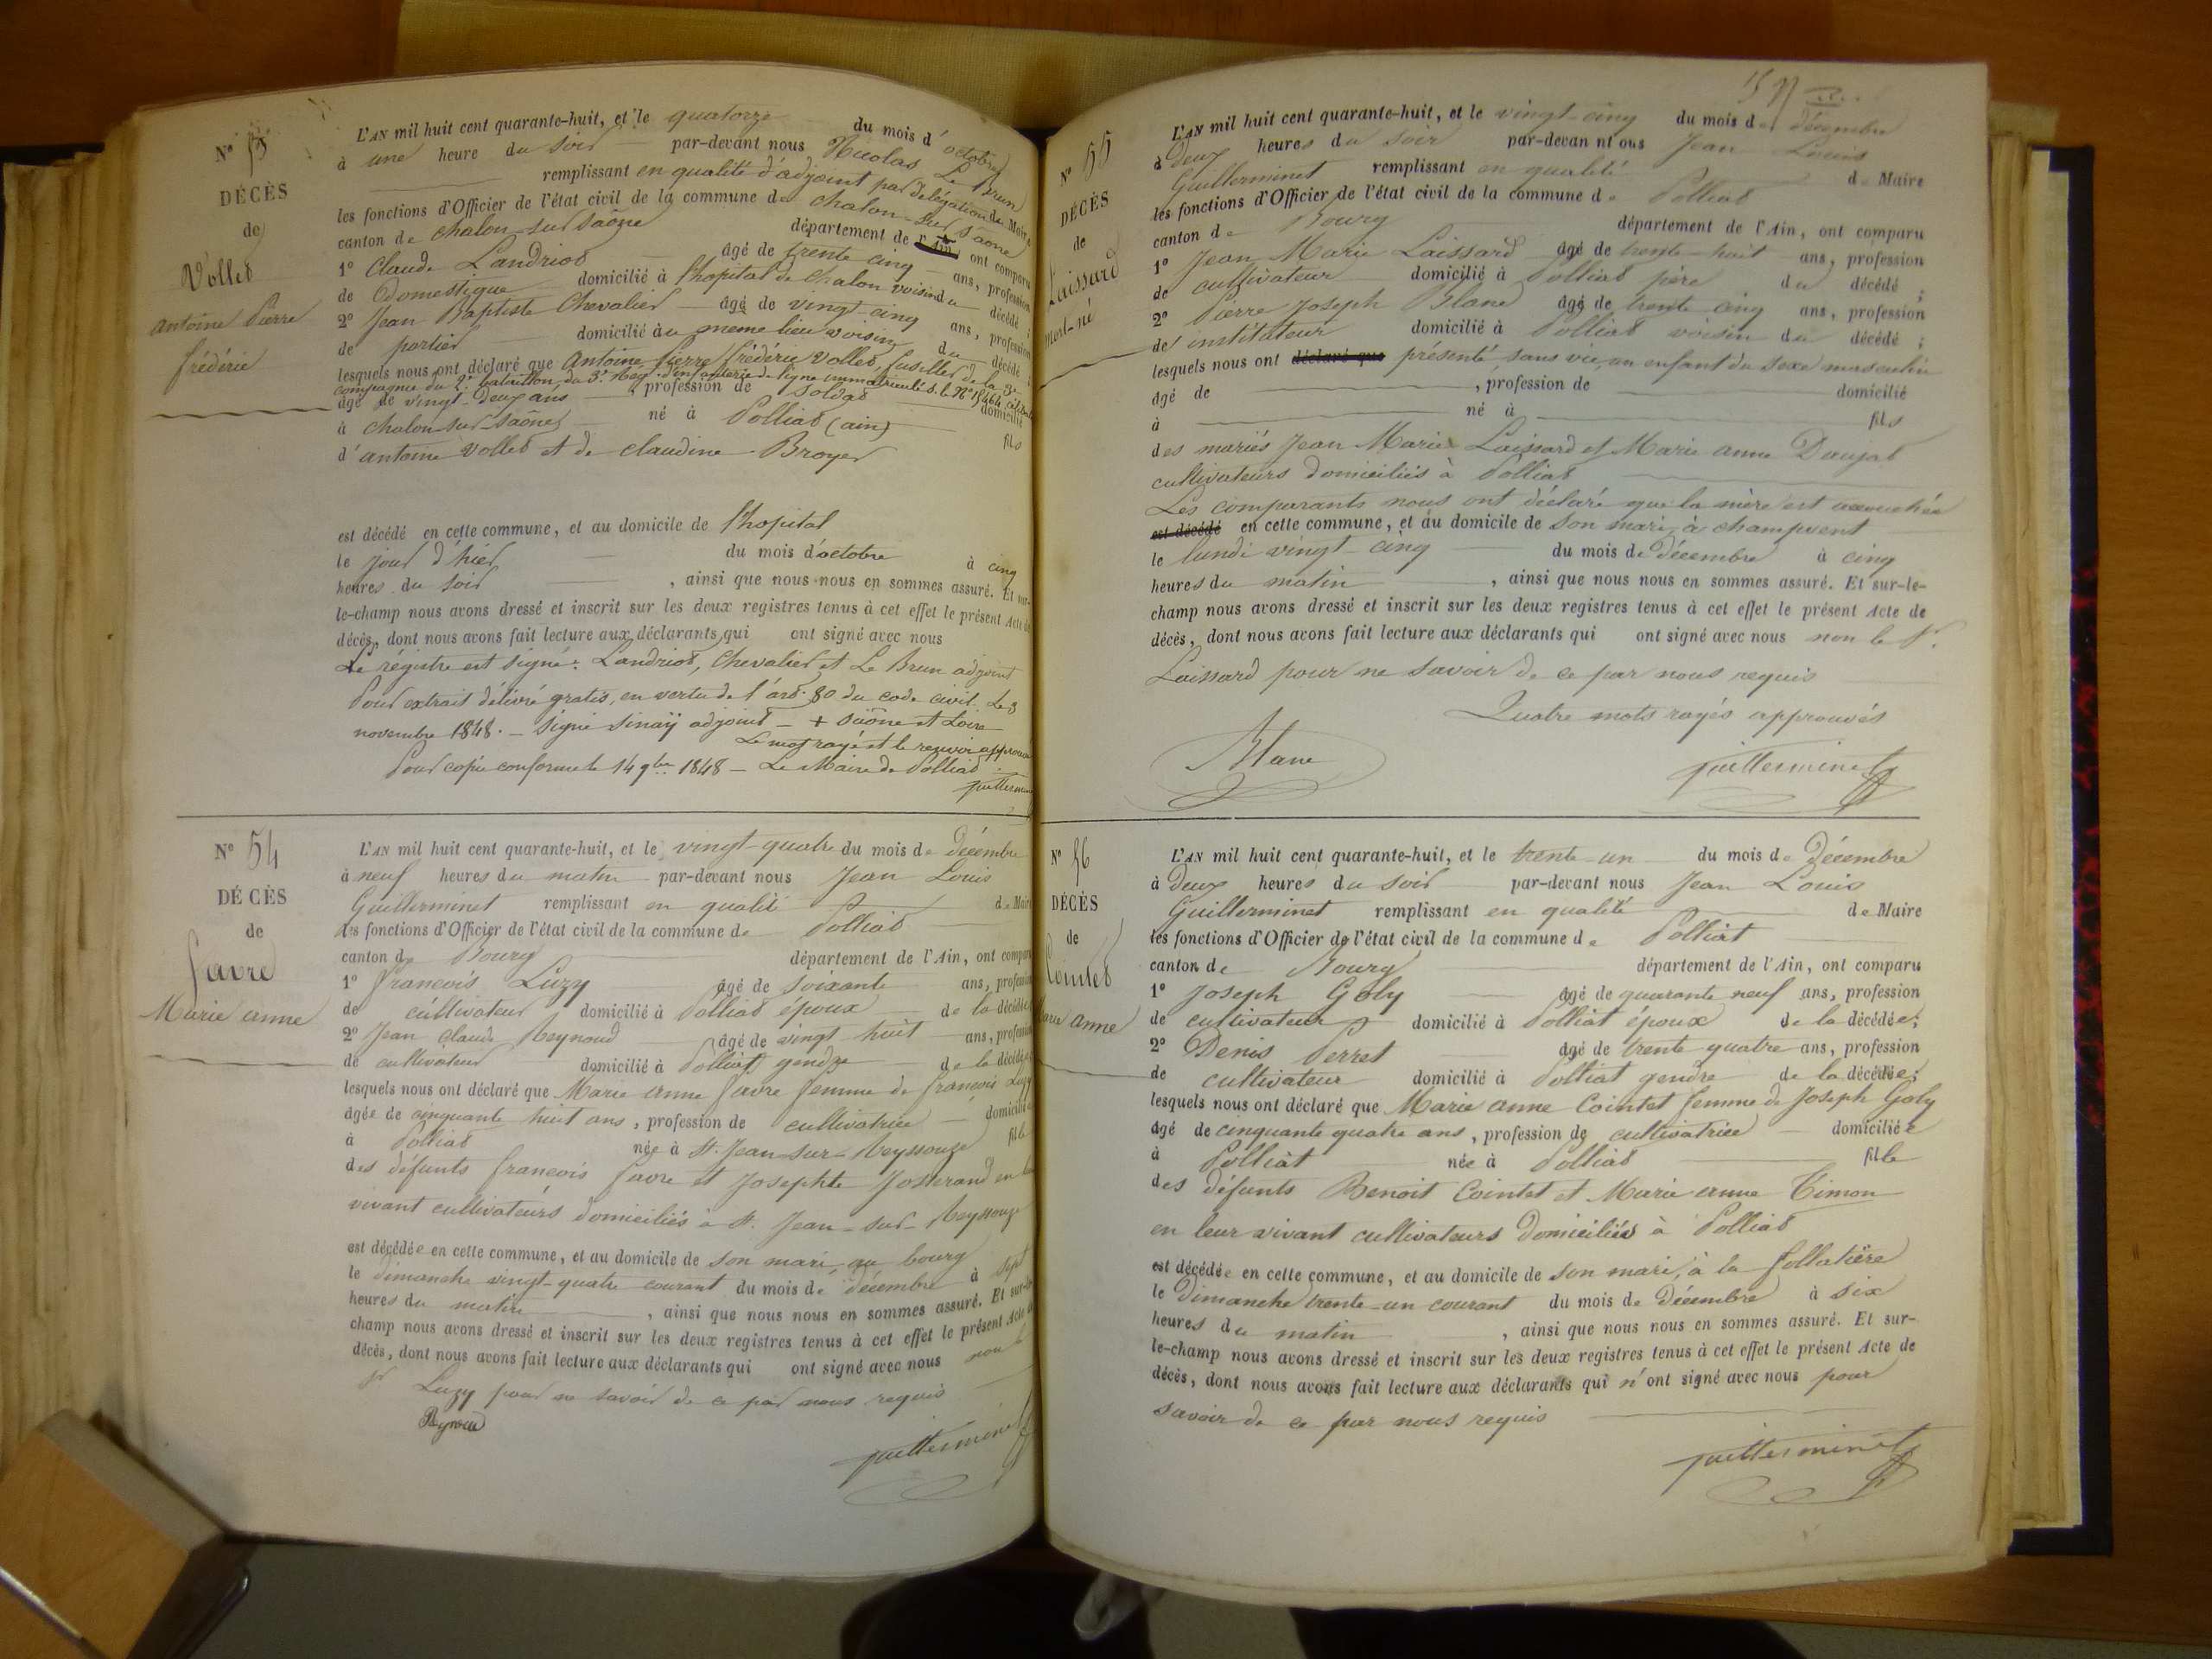 N° 53
DÉCÈS
de
Vollet
Antoine Pierre
frédéric
L'AN mil huit cent quarante-huit, et le quatorze du mois d'octobre
à une heure du soir par-devant nous Nicolas Le Brun
remplissant en qualité d'adjoint par délégation du Maire
les fonctions d'Officier de l'état civil de la commune de chalon-sur Saône
canton de chalon-sur Saône département de l'Ain, ont comparu
1° Claude Landriot âgé de trente cinq ans, profession
de Domestique domicilié à l'hopital de Chalon voisin du décédé ;
2° Jean Baptiste Chevalier âgé de vingt-cinq ans, profession
de portier domicilié au meme lieu voisin du décédé ;
lesquels nous ont déclaré que Antoine Pierre frédéric Vollet, fusilier de la 3e
compagnie du 2e bataillon, du 3e Reg. d'infanterie de ligne immatriculé s. le N°
âgé de vingt-deux ans, profession de soldat domicilié
à chalon-sur-Saône né à Polliat (ain) fils
d'antoine Vollet et de claudine Broyer
est décédé en cette commune, et au domicile de l'hopital
le jour d'hier du mois d'octobre à cinq
heures du soir, ainsi que nous nous en sommes assuré. Et sur-
le-champ nous avons dressé et inscrit sur les deux registres tenus à cet effet le présent Acte de
décès, dont nous avons fait lecture aux déclarants qui ont signé avec nous
Le régistre est signé: Landriot, Chevalier et Le Brun adjoint
Pour extrait délivré gratis, en vertu de l'art. 80 du code civil. Le 3
novembre 1848. — Signé Sinaÿ adjoint — + Saône et Loire
Le mot rayé et le renvoi approuvés
Pour copie conforme le 14 9bre 1848 — Le Maire de Polliat
Guillerminet
N° 54
DÉCÈS
de
favre
Marie anne
L'AN mil huit cent quarante-huit, et le vingt-quatre du mois de Décembre
à neuf heures du matin par-devant nous Jean Louis
Guillerminet remplissant en qualité de Maire
les fonctions d'Officier de l'état civil de la commune de Polliat
canton de Bourg département de l'Ain, ont comparu
1° francois Luzy âgé de soixante ans, profession
de cultivateur domicilié à Polliat époux de la décédée
2° Jean Claude Reynoud âgé de vingt huit ans, profession
de cultivateur domicilié à Polliat gendre de la décédée
lesquels nous ont déclaré que Marie anne favre femme de francois Luzy
âgée de cinquante huit ans, profession de cultivatrice domiciliée
à Polliat née à St. Jean-sur-Reyssouze fille
des défunts francois favre et Josephte Josserand en leur
vivant cultivateurs domiciliés à St. Jean-sur-Reyssouze
est décédée en cette commune, et au domicile de son mari, au bourg
le dimanche vingt-quatre courant du mois de décembre à sept
heures du matin, ainsi que nous nous en sommes assuré. Et sur-le-
champ nous avons dressé et inscrit sur les deux registres tenus à cet effet le présent Acte de
décès, dont nous avons fait lecture aux déclarants qui ont signé avec nous non le
sr Luzy pour ne savoir de ce par nous requis
Reynoud
Guillerminet
N° 55
DÉCÈS
de
Laissard
mort-né
L'AN mil huit cent quarante-huit, et le vingt-cinq du mois de décembre
à Deux heures du soir par-devan nt ous Jean Louis
Guillerminet remplissant en qualité de Maire
les fonctions d'Officier de l'état civil de la commune de Polliat
canton de Bourg département de l'Ain, ont comparu
1° Jean Marie Laissard âgé de trente-huit ans, profession
de cultivateur domicilié à Polliat père du décédé ;
2° Pierre Joseph Blanc âgé de trente cinq ans, profession
de institateur domicilié à Polliat voisin du décédé ;
lesquels nous ont déclaré que présenté, sans vie, un enfant du sexe masculin
âgé de , profession de domicilié
à né à fils
des mariés Jean Marie Laissard et Marie anne Daujat
cultivateurs domiciliés à Polliat
Les comparants nous ont déclaré que la mère est accouchée
est décédé en cette commune, et au domicile de son mari, à champvent
le lundi vingt-cinq du mois de Décembre à cinq
heures du matin, ainsi que nous nous en sommes assuré. Et sur-le-
champ nous avons dressé et inscrit sur les deux registres tenus à cet effet le présent Acte de
décès, dont nous avons fait lecture aux déclarants qui ont signé avec nous non le Sr.
Laissard pour ne savoir de ce par nous requis
Quatre mots rayés approuvés
Blanc Guillerminet
N° 56
DÉCÈS
de
Cointet
Marie anne
L'AN mil huit cent quarante-huit, et le trente-un du mois de Décembre
à Deux heures du soir par-devant nous Jean Louis
Guillerminet remplissant en qualité de Maire
les fonctions d'Officier de l'état civil de la commune de Polliat
canton de Bourg département de l'Ain, ont comparu
1° Joseph Goly âgé de quarante neuf ans, profession
de cultivateur domicilié à Polliat époux de la décédée;
2° Denis Perret âgé de trente quatre ans, profession
de cultivateur domicilié à Polliat gendre de la décédée;
lesquels nous ont déclaré que Marie anne Cointet femme de Joseph Goly
âgé de cinquante quatre ans, profession de cultivatrice domiciliée
à Polliat née à Polliat fille
des défunts Benoit Cointet et Marie anne Timon
en leur vivant cultivateurs domiciliés à Polliat
est décédée en cette commune, et au domicile de son mari, à la follatière
le Dimanche trente-un courant du mois de Décembre à six
heures du matin, ainsi que nous nous en sommes assuré. Et sur-
le-champ nous avons dressé et inscrit sur les deux registres tenus à cet effet le présent Acte de
décès, dont nous avons fait lecture aux déclarants qui n'ont signé avec nous pour
savoir de ce par nous requis
Guillerminet